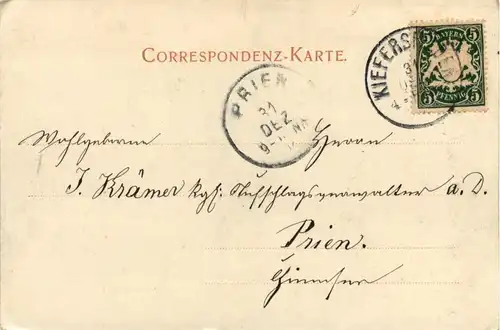 CORRESPONDENZ-KARTE.
BAYERN
5 5
5 PFENNIG 5
KIEFERS
31
PRIEN
31
DEZ
Wohlgeboren Herrn
J. Krämer kgl. Aufschlagverwalter a. D.
Prien.
Chiemsee